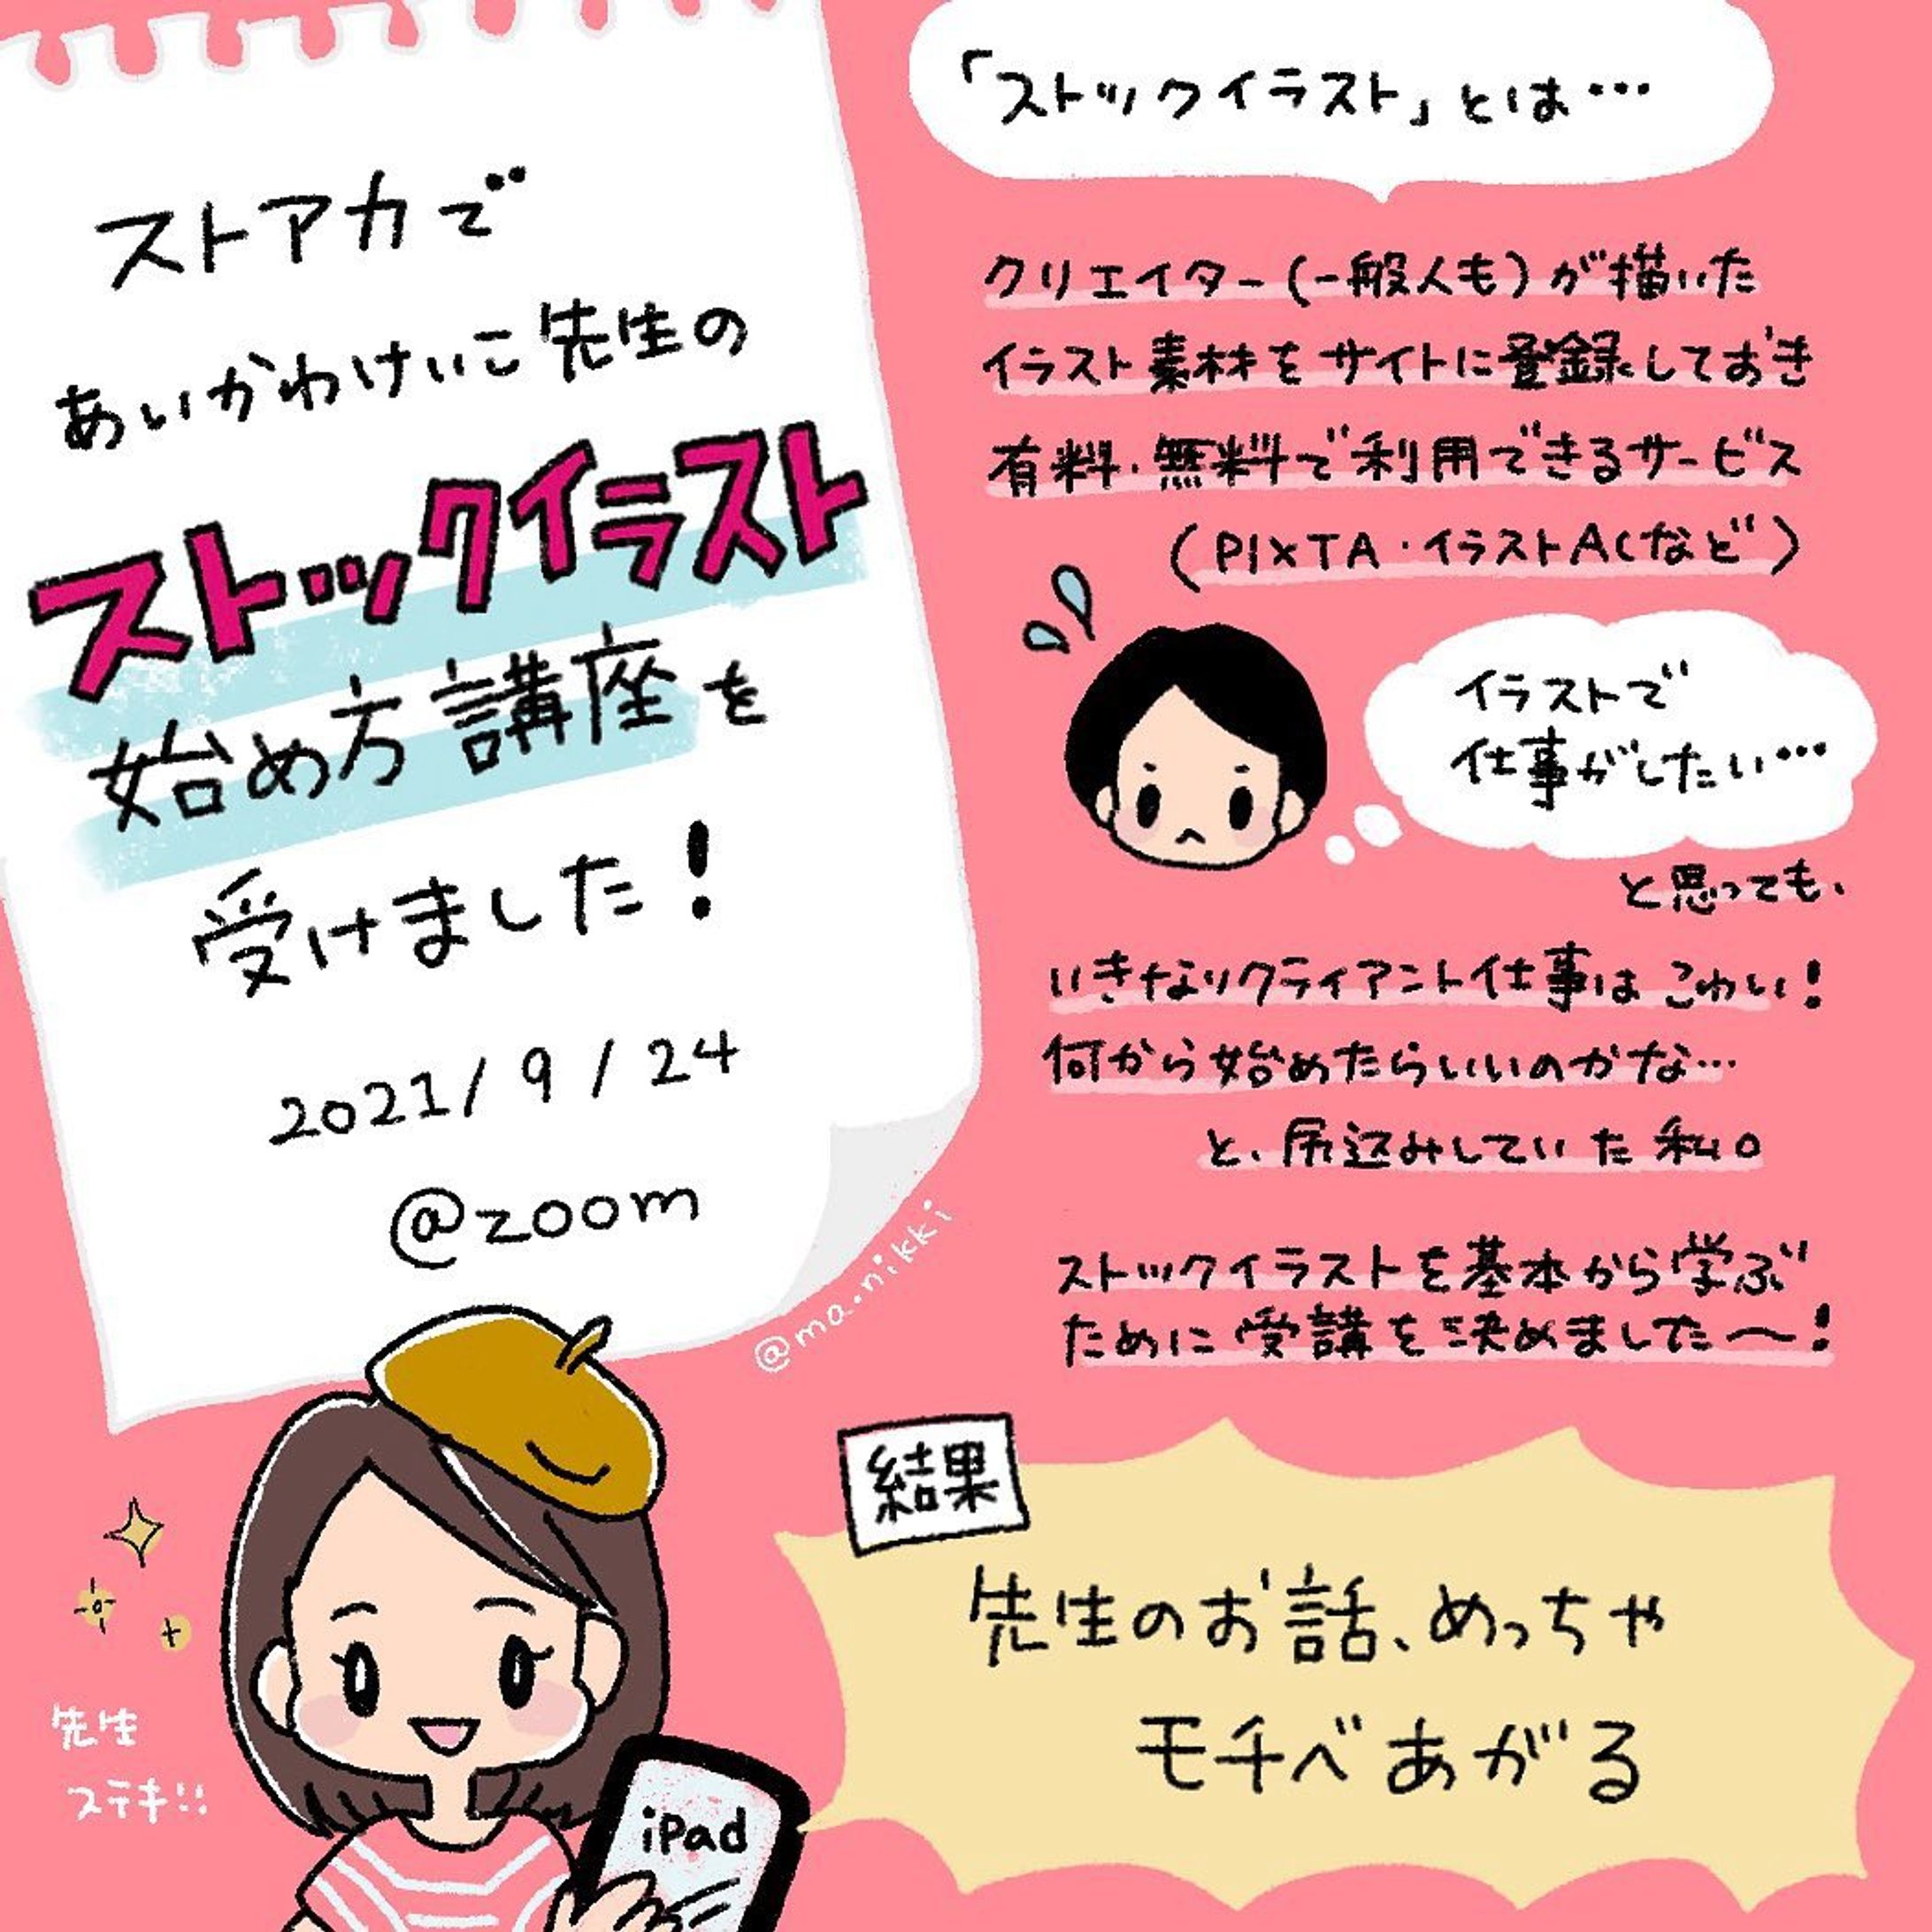 ストアカで
あいかわけいこ先生の
ストックイラスト
始め方講座を
受けました!
2021/9/24
@zoom
@ma.nikki
先生
ステキ!!
iPad
「ストックイラスト」とは…
クリエイター(一般人も)が描いた
イラスト素材をサイトに登録しておき
有料・無料で利用できるサービス
(PIXTA・イラストACなど)
イラストで
仕事がしたい…
と思っても、
いきなりクライアント仕事はこわい!
何から始めたらいいのかな…
と、尻込みしていた私。
ストックイラストを基本から学ぶ
ために受講を決めました〜!
結果
先生のお話、めっちゃ
モチベあがる